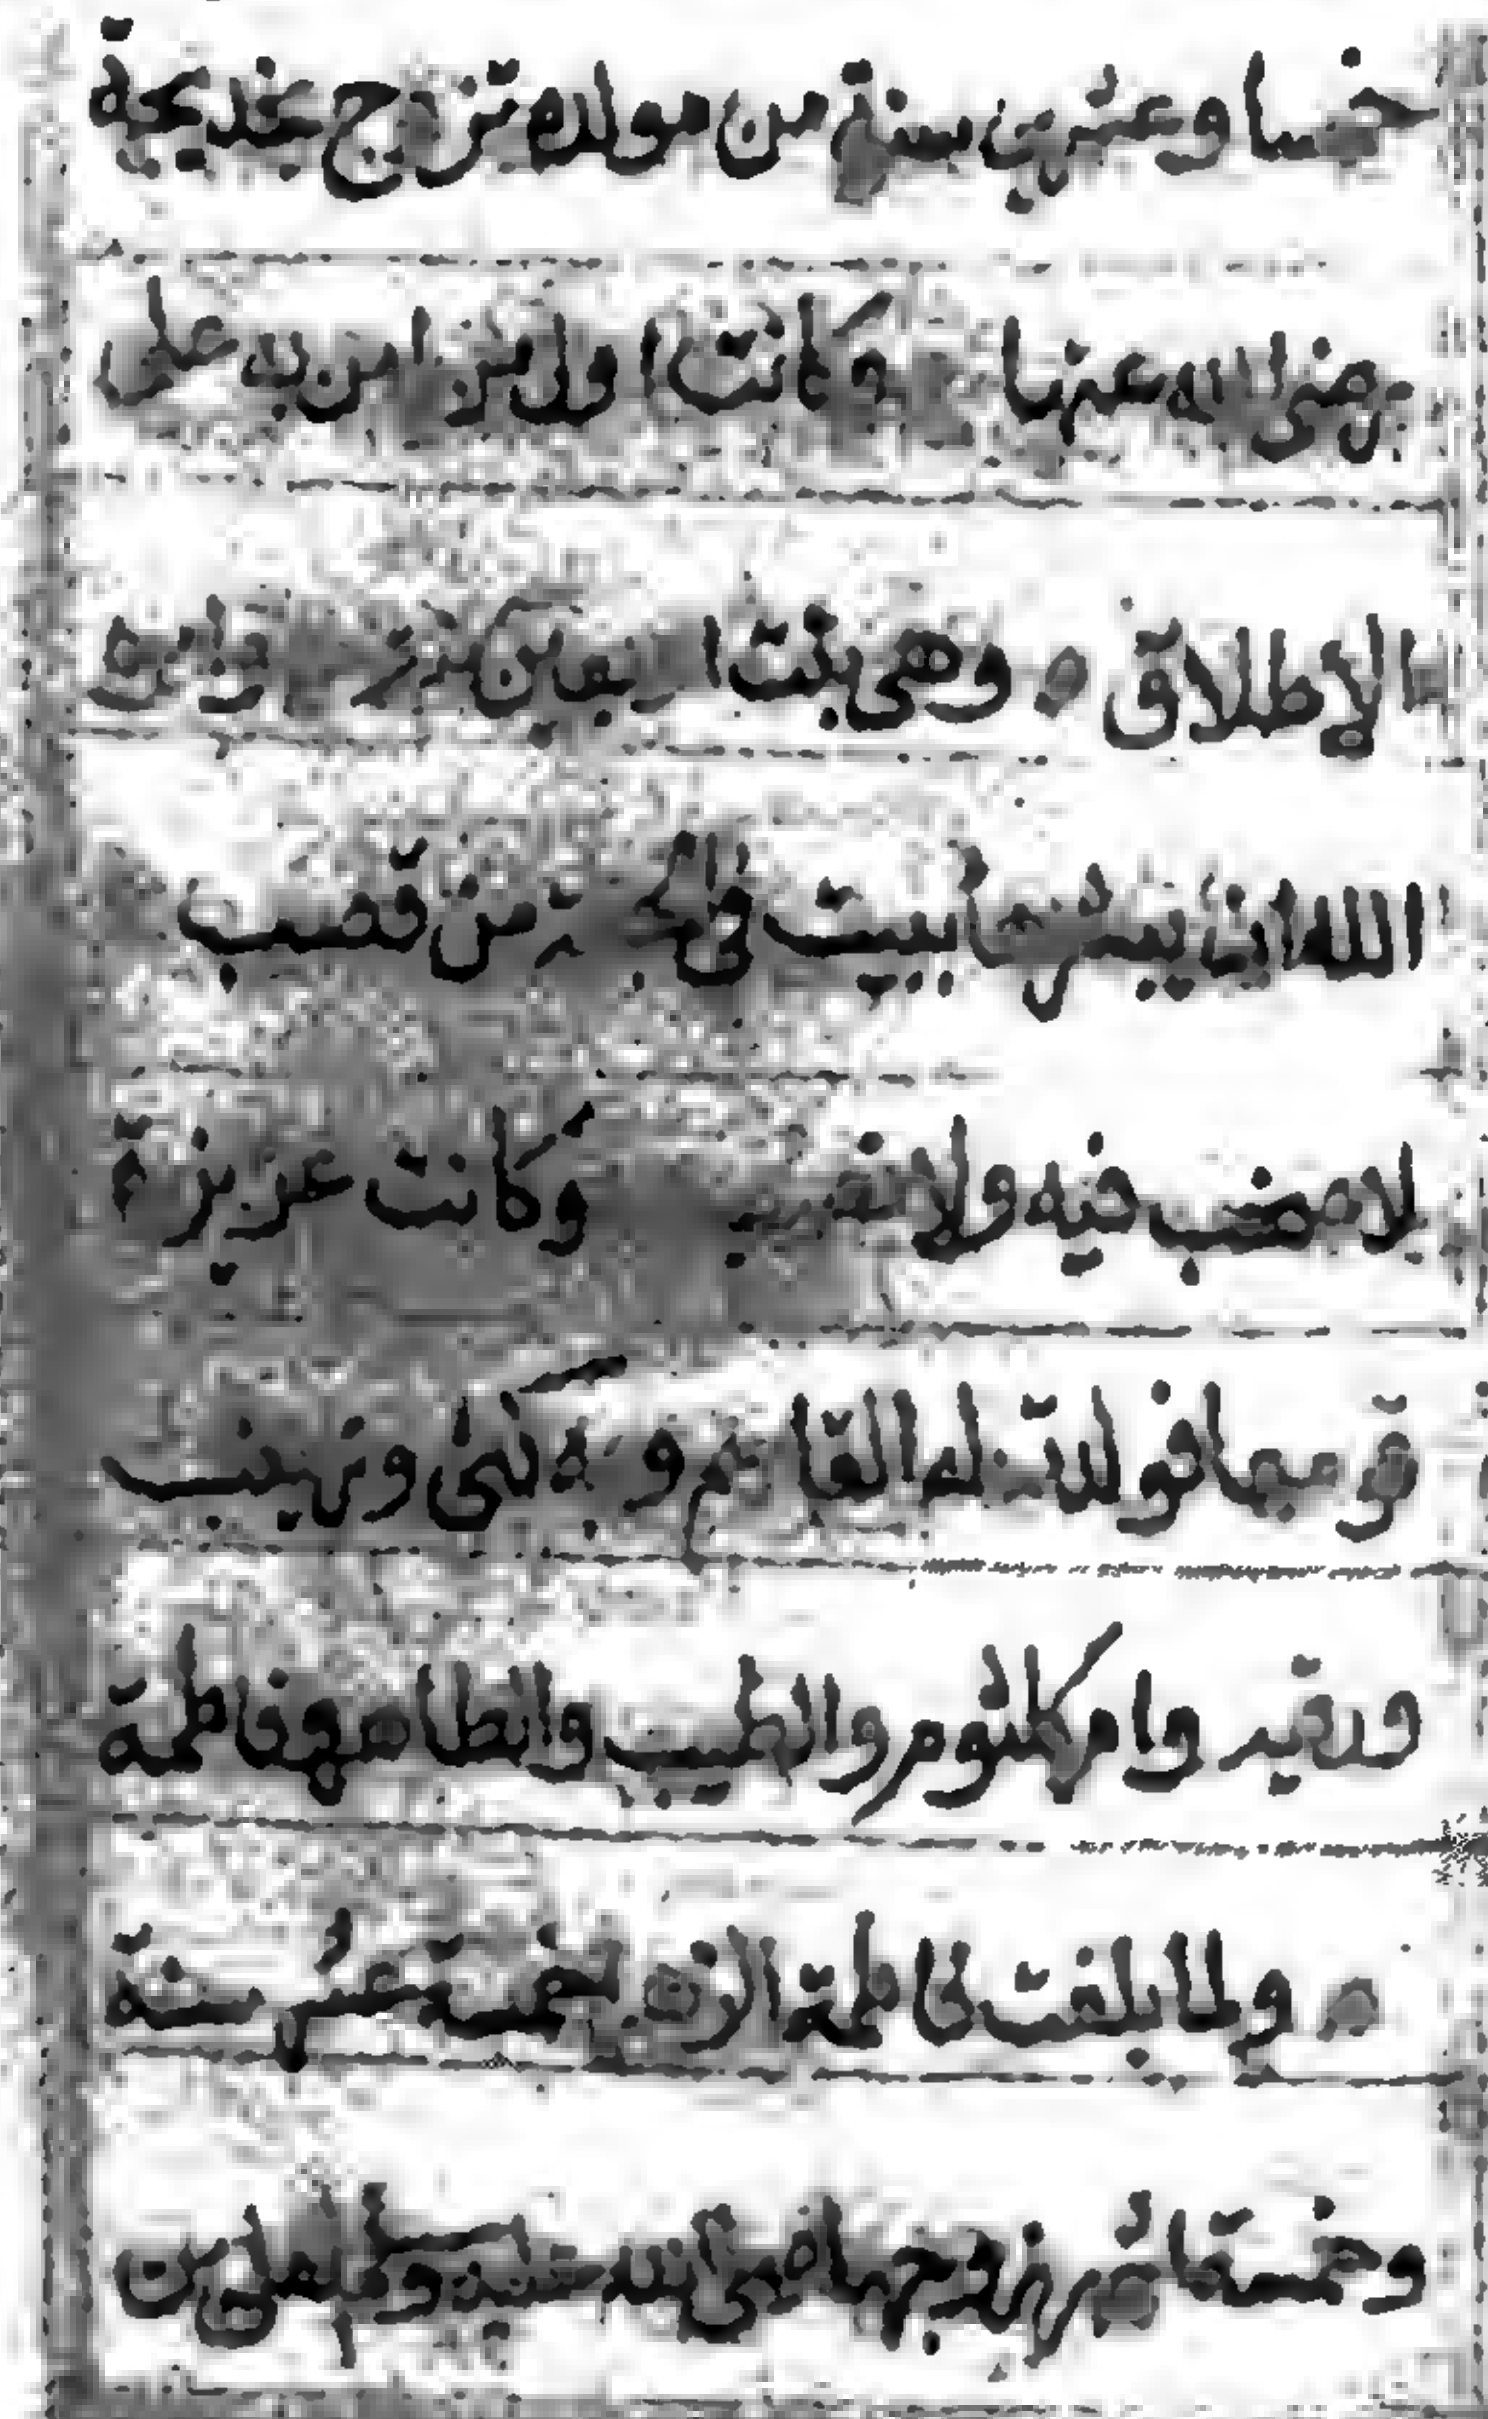 خمسا وعشرين سنة من مولده تزوج بخديجة
رضى الله عنها وكانت اول من امن به على
الإطلاق ه وهى بنت اربعين
الله ان يبشرها ببيت فى الجنة من قصب
لا صخب فيه ولا نصب وكانت عزيزة
قومها فولدت له القاسم وبه كنى وزينب
ورقية وام كلثوم والطيب والطاهر وفاطمة
ه ولما بلغت فاطمة الزهراء خمسة عشر سنة
وخمسة اشهر زوجها صلى الله عليه وسلم لعلى بن